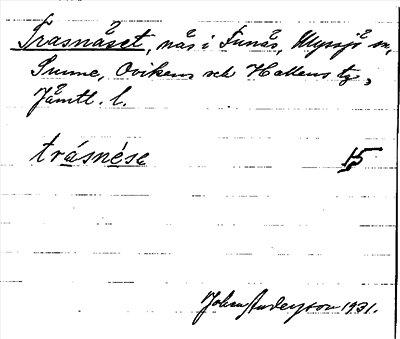 Trasnäset, näs i Funäs, Myssjö sn,
Sunne, Ovikens och Hallens tg,
Jämtl. l.
trásnése 15
Johan Anderson 1931.